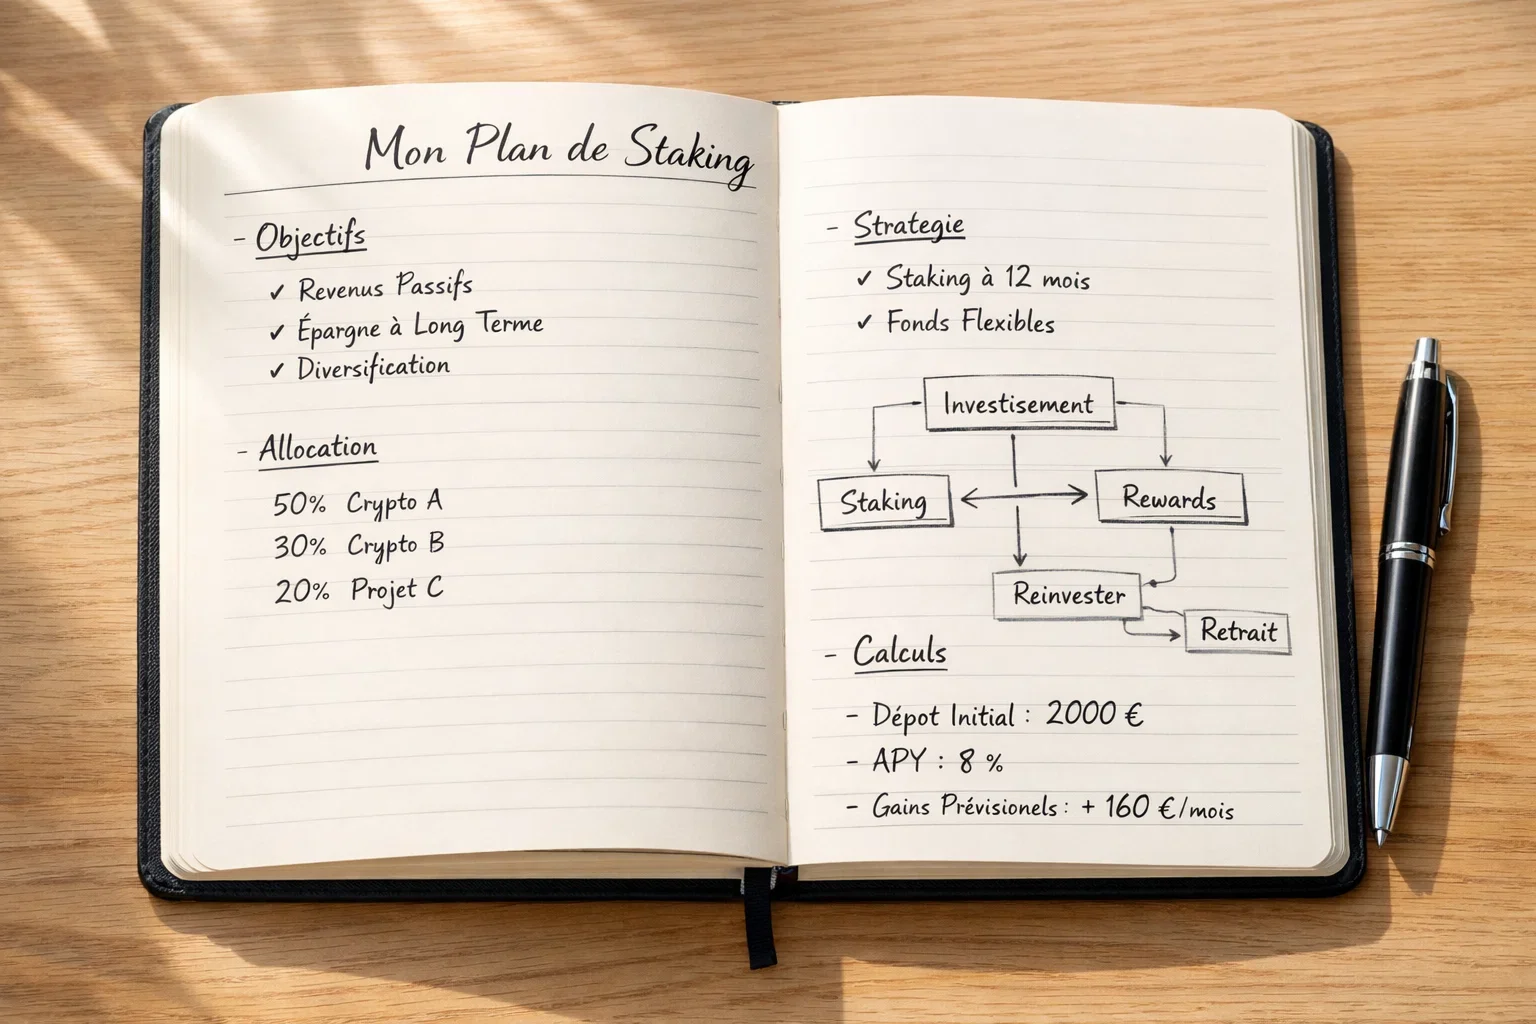 Mon Plan de Staking
- Objectifs
✓ Revenus Passifs
✓ Épargne à Long Terme
✓ Diversification
- Allocation
50% Crypto A
30% Crypto B
20% Projet C
- Strategie
✓ Staking à 12 mois
✓ Fonds Flexibles
Investisement
Staking
Rewards
Reinvester
Retrait
- Calculs
- Dépot Initial : 2000 €
- APY : 8 %
- Gains Prévisionels : + 160 €/mois